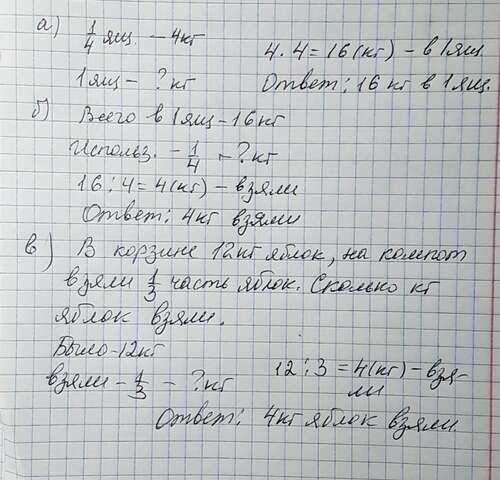 а) 1/4 ящ. – 4кг
4 · 4 = 16 (кг) – в 1ящ.
1 ящ – ? кг
Ответ: 16 кг в 1 ящ.
б) Всего в 1 ящ – 16 кг
Использ. – 1/4 – ? кг
16 : 4 = 4 (кг) – взяли
Ответ: 4кг взяли
в) В корзине 12кг яблок, на компот
взяли 1/3 часть яблок. Сколько кг
яблок взяли.
Было – 12кг
взяли – 1/3 – ? кг
12 : 3 = 4(кг) – взя-
ли
Ответ: 4кг яблок взяли.